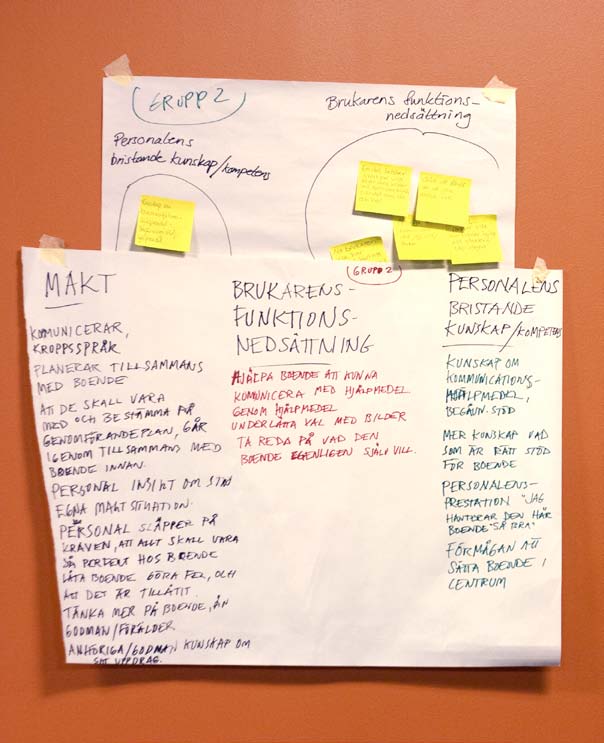 GRUPP 2
Brukarens funktions-
nedsättning
Personalens
bristande kunskap/kompetens
GRUPP 2
MAKT
KOMUNICERAR,
KROPPSSPRÅK
PLANERAR TILLSAMMANS
MED BOENDE
ATT DE SKALL VARA
MED OCH BESTÄMMA PÅ
GENOMFÖRANDEPLAN, GÅR
IGENOM TILLSAMMANS MED
BOENDE INNAN.
PERSONAL INSIKT OM
EGNA MAKTSITUATION.
PERSONAL SLÄPPER PÅ
KRAVEN, ATT ALLT SKALL VARA
SÅ PERFEKT HOS BOENDE
LÅTA BOENDE GÖRA FEL, OCH
ATT DET ÄR TILLÅTIT.
TÄNKA MER PÅ BOENDE, ÄN
GODMAN/FÖRÄLDER.
ANHÖRIGA/GODMAN KUNSKAP OM
SITT UPPDRAG.
BRUKARENS-
FUNKTIONS-
NEDSÄTTNING
HJÄLPA BOENDE ATT KUNNA
KOMUNICERA MED HJÄLPMEDEL
GENOM HJÄLPMEDEL
UNDERLÄTTA VAL MED BILDER
TA REDA PÅ VAD DEN
BOENDE EGENLIGEN SJÄLV VILL.
PERSONALENS
BRISTANDE
KUNSKAP/KOMPETENS
KUNSKAP OM
KOMMUNICATIONS-
HJÄLPMEDEL,
BEGÅVN.STÖD
MER KUNSKAP VAD
SOM ÄR RÄTT STÖD
FÖR BOENDE
PERSONALENS-
PRESTATION "JAG
HANTERAR DEN HÄR
BOENDE "SÅ BRA"
FÖRMÅGAN ATT
SÄTTA BOENDE I
CENTRUM